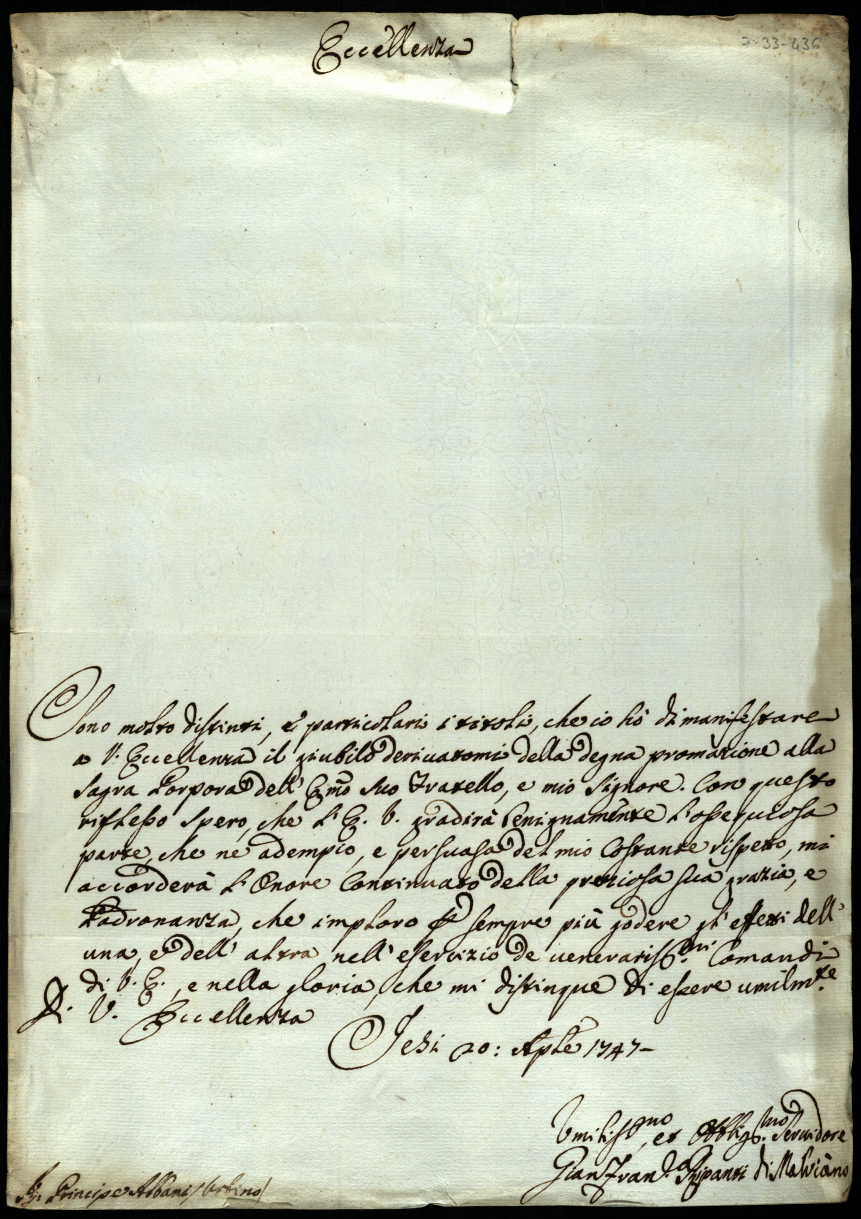 Eccellenza
2-33-436
Sono molto distinti, e particolari i titoli, che io hò di manifestare
a V. Eccellenza il giubilo derivatomi della degna promozione alla
Sagra Porpora dell' Emo Suo Fratello, e mio Signore. Con questo
riflesso spero, che l'E. V. gradirà benignamente l'ossequiosa
parte, che ne adempio, e persuasa del mio costante rispetto, mi
accorderà l'Onore continuato della preziosa sua grazia, e
Padronanza, che imploro per sempre più godere gl'effetti dell'
una, e dell' altra nell' esercizio de veneratiss.mi Comandi
di V. E., e nella gloria, che mi distingue di essere umilm.te
Di V. Eccellenza
Jesi 20: Aple 1747-
Umiliss.mo, et Obblig.mo Servidore
Gian Fran.co Ripanti di Malviano
Sig. Principe Albani / Urbino /